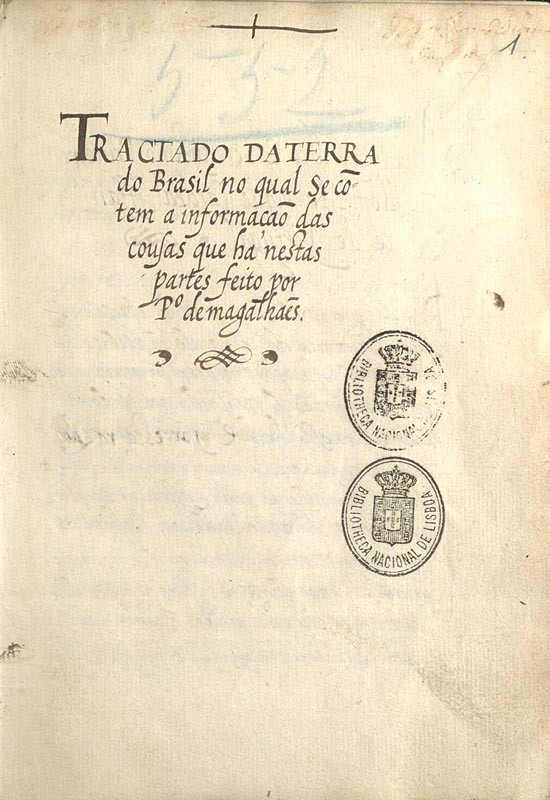 1
552
TRACTADO DA TERRA
do Brasil no qual se cõ-
tem a informação das
cousas que ha' nestas
partes feito por
Pº de magalhaẽs.
BIBLIOTHECA NACIONAL
BIBLIOTHECA NACIONAL DE LISBOA